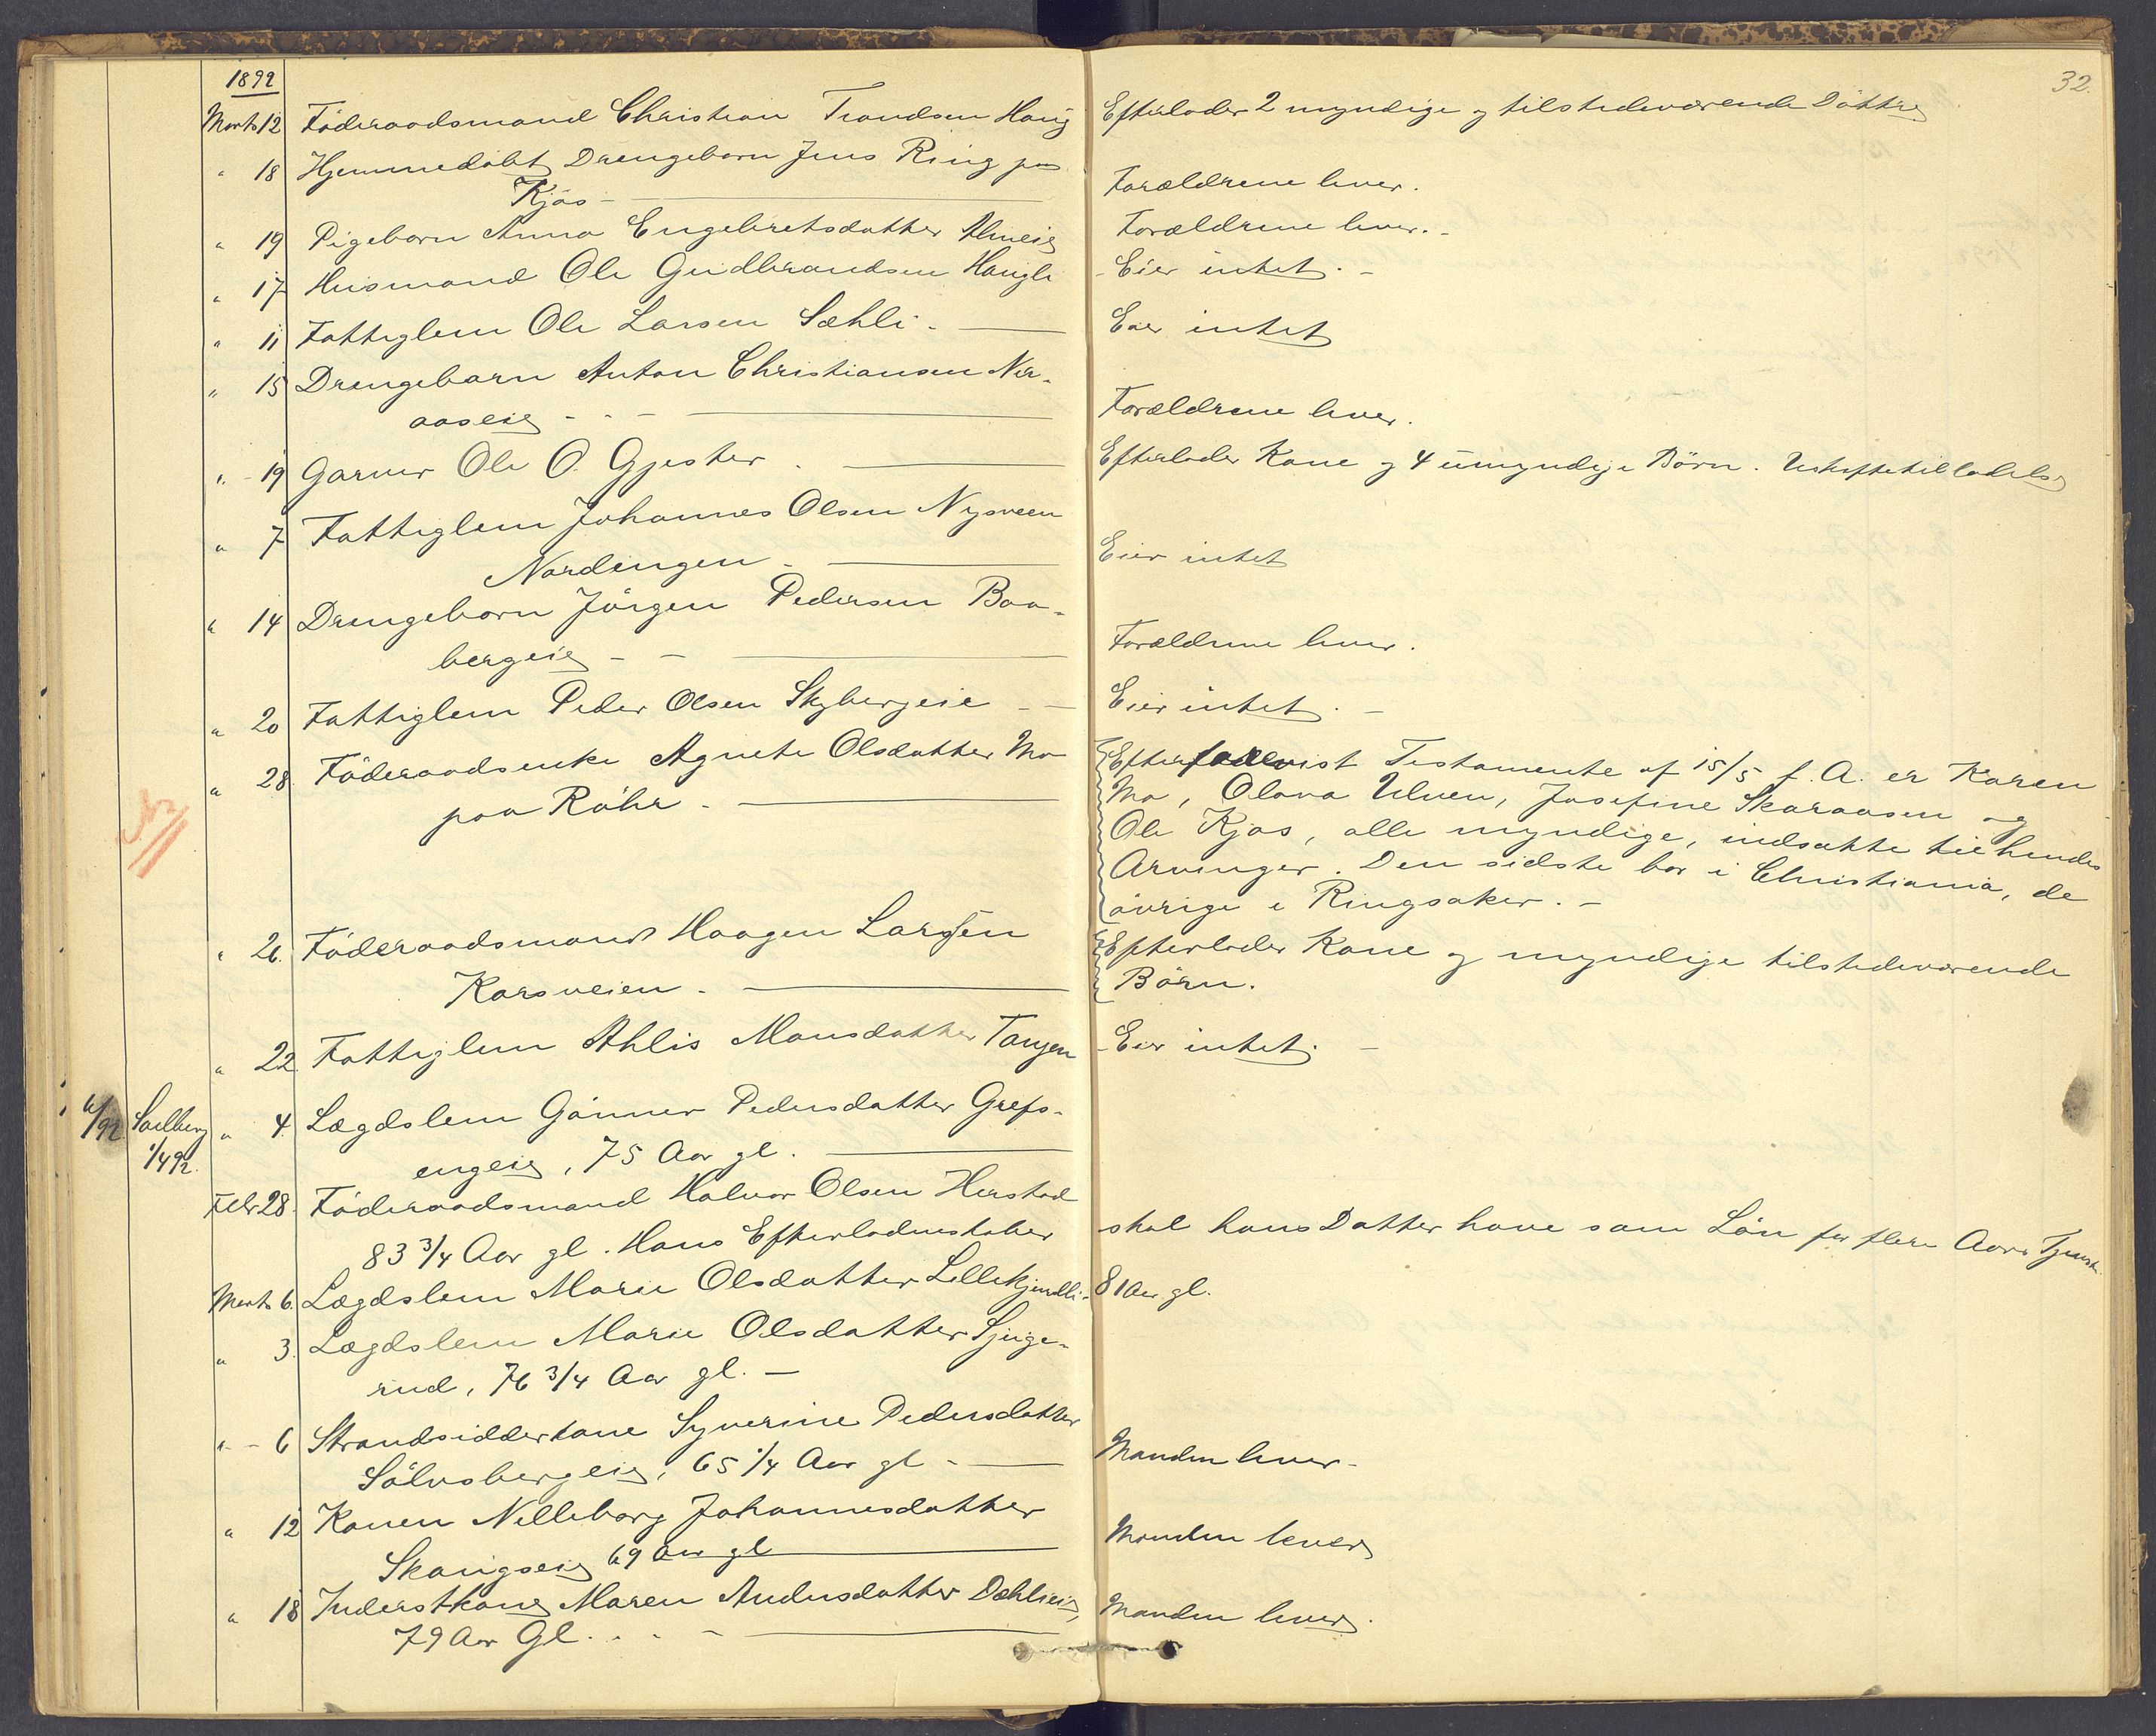 32.
1892
Marts 12 Föderaadsmand Christian Trondsen Haug Efterlader 2 myndige og tilstedeværende Döttre
" 18 Hjemmedöbt Drengebarn Jens Ring paa
Kjös - Forældrene lever.
" 19 Pigebarn Anna Engebretsdatter Almeie Forældrene lever. -
" 17 Husmand Ole Gudbrandsen Haugli - Eier intet. -
" 11 Fattiglem Ole Larsen Sæhli - Eier intet
" 15 Drengebarn Anton Christiansen Ner-
aaseie - - - Forældrene lever.
" - 19 Garver Ole O. Gjester. Efterlader Kone og 4 umyndige Börn. Uskiftetilladelse
" 7 Fattiglem Johannes Olsen Nysveen
Nordengen - Eier intet
" 14 Drengebarn Jörgen Pedersen Baa-
bergeie - - Forældrene lever.
" 20 Fattiglem Peder Olsen Skybergeie - - Eier intet. -
" 28. Föderaadsenke Agnethe Olsdatter Mo
paa Röhr. -
Efter forevist Testamente af 15/5 f. A. er Karen
Mo, Olava Ulven, Josefine Skaraasen og
Ole Kjos, alle myndige, indsatte til hendes
Arvinger. Den sidste bor i Christiania, de
övrige i Ringsaker. -
" 26. Föderaadsmand Haagen Larsen
Korsveien. -
Efterlader Kone og myndige tilstedeværende
Börn.
" 22 Fattiglem Ahlis Monsdatter Tangen - Eier intet. -
4/92 Saelberg
1/4 92.
" 4. Lægdslem Gönner Pedersdatter Grefs-
engeie, 75 Aar gl.
Febr 28. Föderaadsmand Halvor Olsen Herstad
83 3/4 Aar gl. Hans Efterladenskaber skal hans Datter have som Lön for flere Aars Tjeneste.
Marts 6. Lægdslem Marie Olsdatter Lillekjendli- 81 Aar gl.
" 3. Lægdslem Marie Olsdatter Sjuge-
rud, 76 3/4 Aar gl. -
" - 6 Strandsidderkone Syverine Pedersdatter
Sölvsbergeie, 65 1/4 Aar gl - Manden lever -
" 12 Konen Nilleborg Johannesdatter
Skaugseie 69 Aar gl Manden lever
" 18 Inderstkone Maren Andersdatter Dæhlieie,
79 Aar Gl. . . - Manden lever.